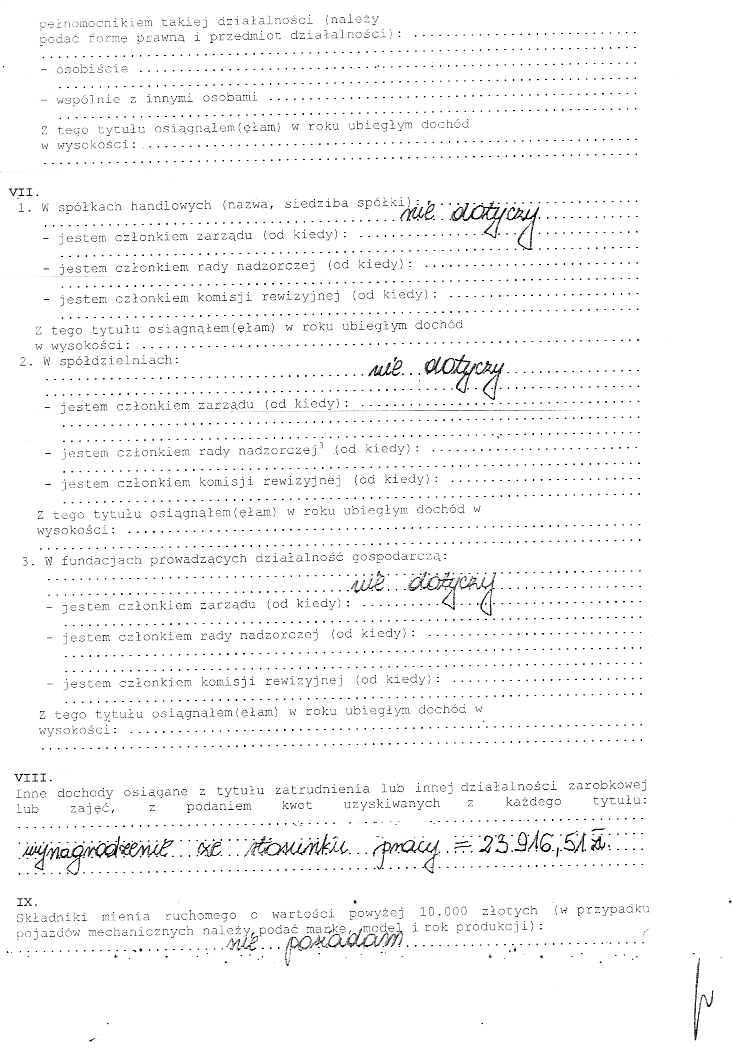 pełnomocnikiem takiej działalności (należy
podać formę prawną i przedmiot działalności):
- osobiście
- wspólnie z innymi osobami
Z tego tytułu osiągnąłem(ęłam) w roku ubiegłym dochód
w wysokości:
VII.
1. W spółkach handlowych (nazwa, siedziba spółki):
nie dotyczy
- jestem członkiem zarządu (od kiedy):
- jestem członkiem rady nadzorczej (od kiedy):
- jestem członkiem komisji rewizyjnej (od kiedy):
Z tego tytułu osiągnąłem(ęłam) w roku ubiegłym dochód
w wysokości:
2. W spółdzielniach:
nie dotyczy
- jestem członkiem zarządu (od kiedy):
- jestem członkiem rady nadzorczej³ (od kiedy):
- jestem członkiem komisji rewizyjnej (od kiedy):
Z tego tytułu osiągnąłem(ęłam) w roku ubiegłym dochód w
wysokości:
3. W fundacjach prowadzących działalność gospodarczą:
nie dotyczy
- jestem członkiem zarządu (od kiedy):
- jestem członkiem rady nadzorczej (od kiedy):
- jestem członkiem komisji rewizyjnej (od kiedy):
Z tego tytułu osiągnąłem(ęłam) w roku ubiegłym dochód w
wysokości:
VIII.
Inne dochody osiągane z tytułu zatrudnienia lub innej działalności zarobkowej
lub zajęć, z podaniem kwot uzyskiwanych z każdego tytułu:
wynagrodzenie ze stosunku pracy = 23.916,51 zł.
IX.
Składniki mienia ruchomego o wartości powyżej 10.000 złotych (w przypadku
pojazdów mechanicznych należy podać markę, model i rok produkcji):
nie posiadam